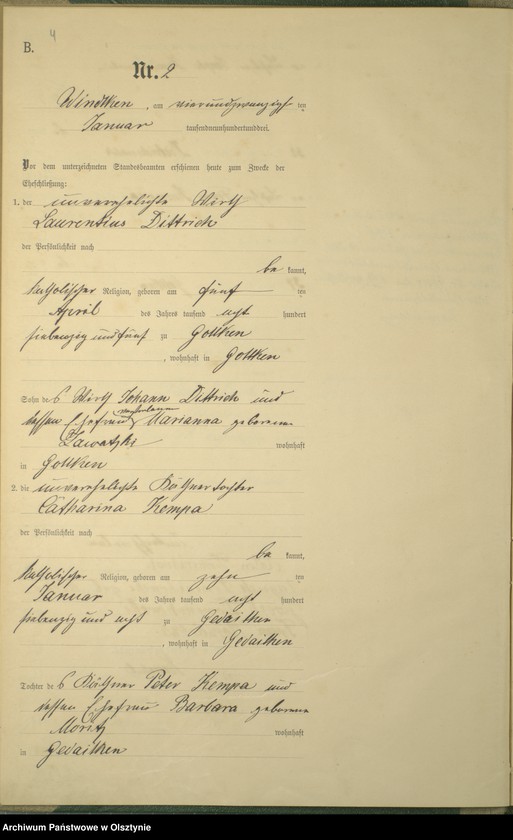 4
B.
Nr. 2
Windtken, am vierundzwanzigsten
Januar tausendneunhundertunddrei.
Vor dem unterzeichneten Standesbeamten erschienen heute zum Zwecke der
Eheschließung:
1. der unverehelichte Wirth
Laurentius Dittrich
der Persönlichkeit nach
be kannt,
katholischer Religion, geboren am fünf ten
April des Jahres tausend acht hundert
siebenzig und fünf zu Gottken
, wohnhaft in Gottken
Sohn des Wirth Johann Dittrich und
dessen Ehefrau Marianna geborene
Zawatzki wohnhaft
in Gottken
2. die unverehelichte Käthnertochter
Catharina Kempa
der Persönlichkeit nach
be kannt,
katholischer Religion, geboren am zehn ten
Januar des Jahres tausend acht hundert
siebenzig und acht zu Gedaithen
, wohnhaft in Gedaithen
Tochter des Käthner Peter Kempa und
dessen Ehefrau Barbara geborene
Moritz wohnhaft
in Gedaithen
Archiwum Państwowe w Olsztynie